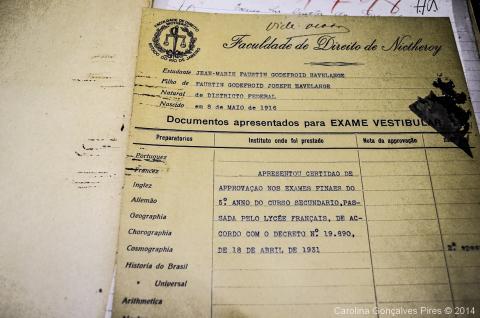 Vide verso
FACULDADE DE DIREITO
ESTADO DO RIO DE JANEIRO
Faculdade de Direito de Nictheroy
Estudante JEAN-MARIE FAUSTIN GODEFROID HAVELANGE
Filho de FAUSTIN GODEFROID JOSEPH HAVELANGE
Natural de DISTRICTO FEDERAL
Nascido em 8 de MAIO de 1916
Documentos apresentados para EXAME VESTIBULAR
Preparatorios Instituto onde foi prestado Nota da approvação
Portuguez
Francez APRESENTOU CERTIDAO DE
Inglez APPROVAÇAO NOS EXAMES FINAES DO
Allemão 5º. ANNO DO CURSO SECUNDARIO, PAS-
Geographia SADA PELO LYCÉE FRANÇAIS, DE AC-
Chorographia CORDO COM O DECRETO Nº. 19.890,
Cosmographia DE 18 DE ABRIL DE 1931
Historia do Brasil
" Universal
Arithmetica
Carolina Gonçalves Pires © 2014